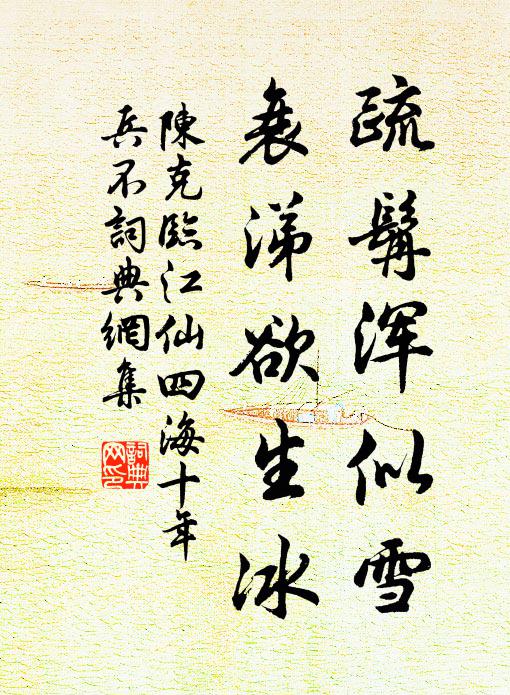 疏髯浑似雪
衰涕欲生冰
陳克臨江仙四海十年
兵不詞典網集
詞典网印